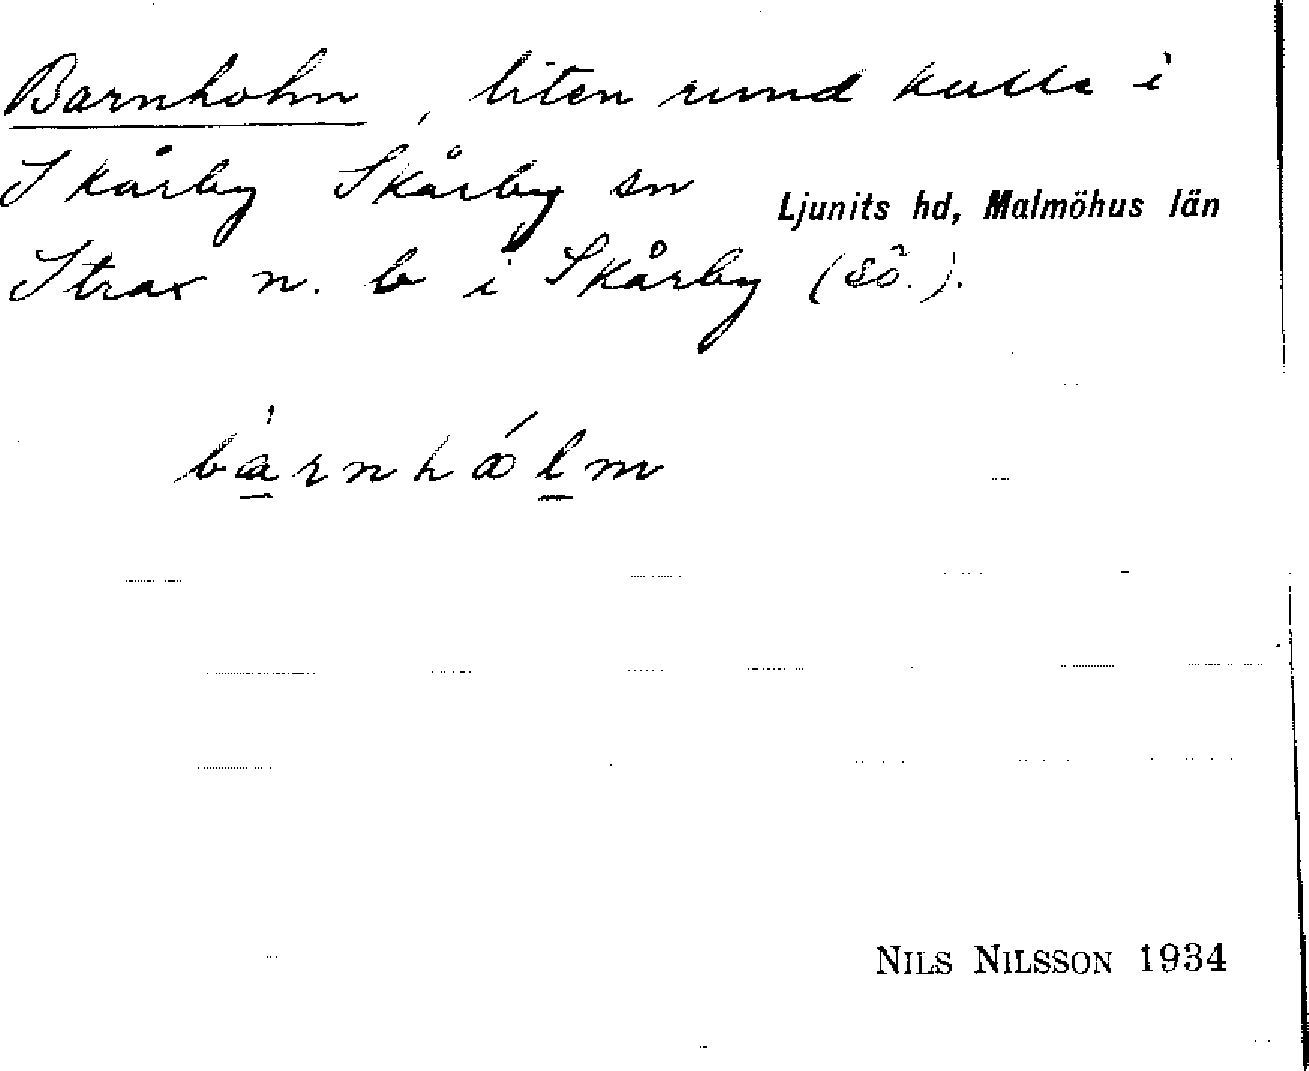 Barnholm, liten rund kulle i
Skårby Skårby sn Ljunits hd, Malmöhus län
Strax n. b i Skårby (sö.).
bàrnhǻlm
NILS NILSSON 1934